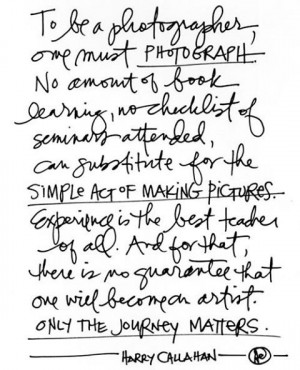 To be a photographer,
one must PHOTOGRAPH.
No amount of book
learning, no checklist of
seminars attended,
can substitute for the
SIMPLE ACT OF MAKING PICTURES.
Experience is the best teacher
of all. And for that,
there is no guarantee that
one will become an artist.
ONLY THE JOURNEY MATTERS.
HARRY CALLAHAN